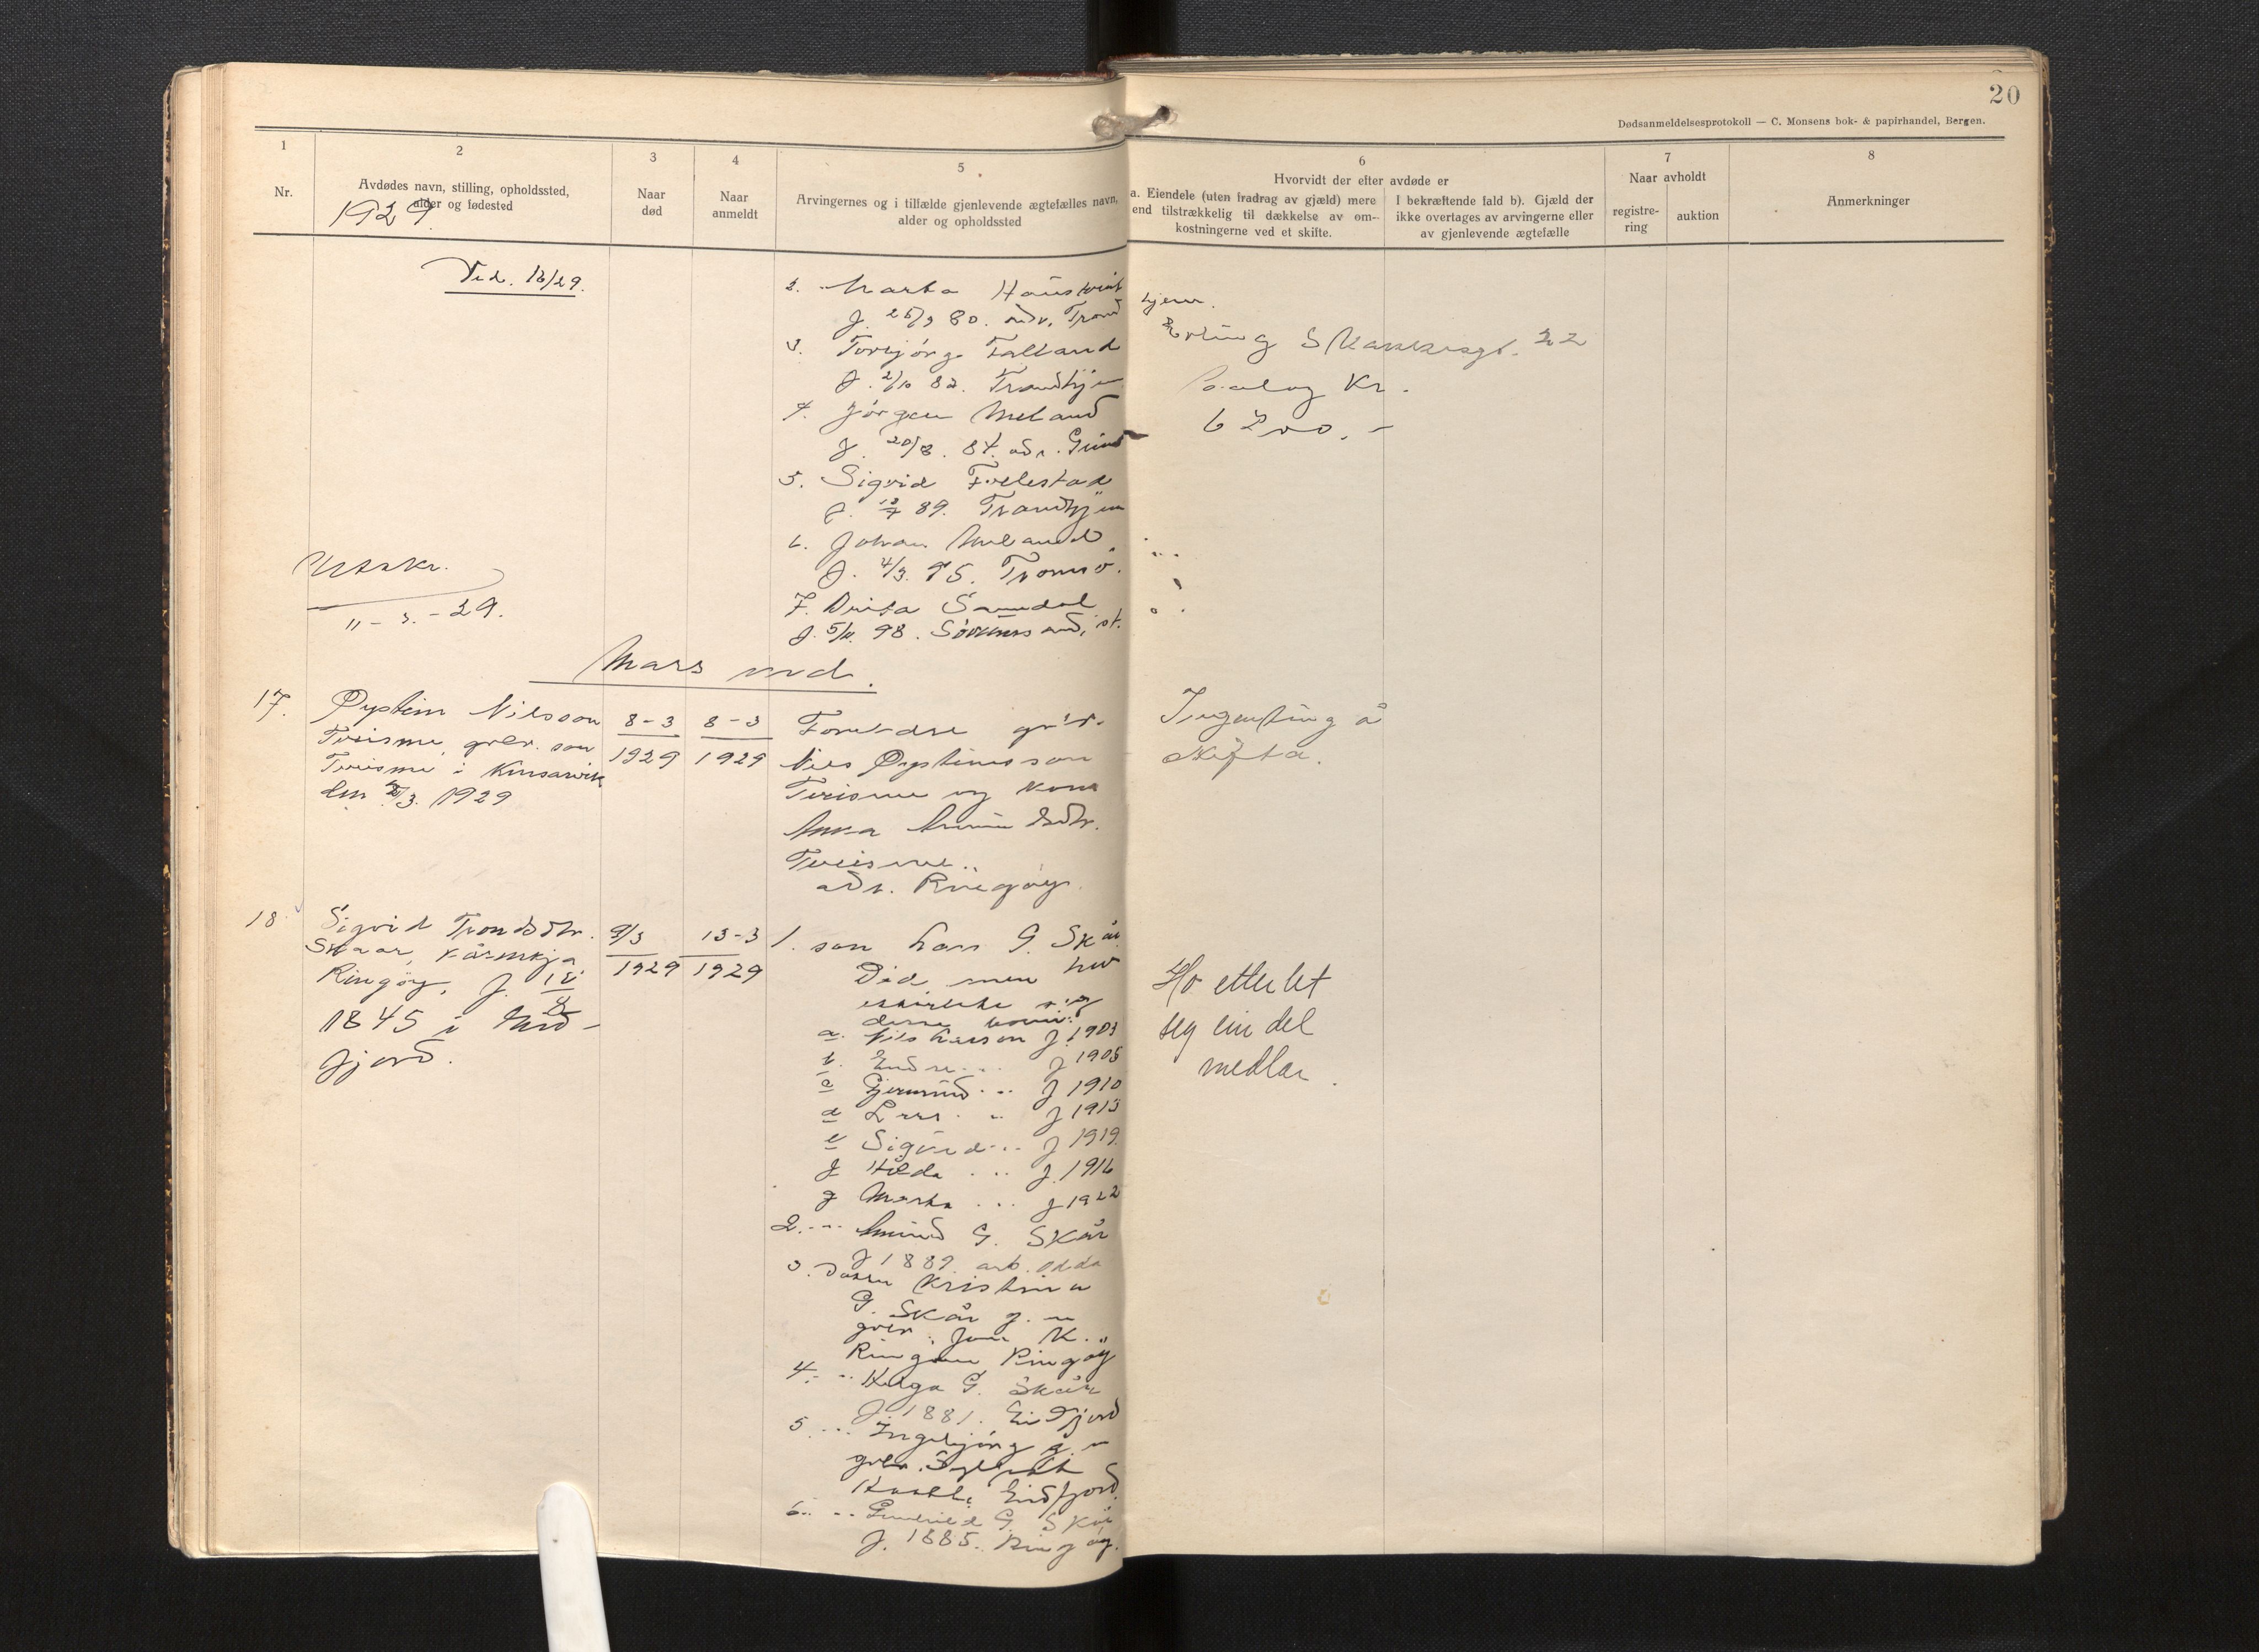 20
Dødsanmeldelsesprotokoll — C. Monsens bok- & papirhandel, Bergen.
1
Nr.
2
Avdødes navn, stilling, opholdssted,
alder og fødested
1929.
3
Naar
død
4
Naar
anmeldt
5
Arvingernes og i tilfælde gjenlevende ægtefælles navn,
alder og opholdssted
6
Hvorvidt der efter avdøde er
a. Eiendele (uten fradrag av gjæld) mere
end tilstrækkelig til dækkelse av om-
kostningerne ved et skifte.
I bekræftende fald b). Gjæld der
ikke overtages av arvingerne eller
av gjenlevende ægtefælle
7
Naar avholdt
registre-
ring
auktion
8
Anmerkninger
Ved. 16/29.
2. Marta
f. 80. adr. Trond
hjem.
Erling Skakkesgt. 22
3. Torbjørg Falland
f. 2/10 82. Trondhjem
4. Jørgen Meland
f. 20/8. 84. adr.
Kr.
6200.-
5. Sigrid Follestad
f. 89. Trondhjem
6. Johan Meland
f. 4/3. 95. Tromsö.
7. Samdal
f. 98. st.
Utskr.
11-3.-29.
Mars md.
17. Øystein Nilsson
Tveisme, gbr. son
Tveisme i Kinsarvik
den /3. 1929
8-3
1929
8-3
1929
Foreldre gbr.
Nils Øysteinsson
Tveisme og kona
Anna
Tveisme..
adr. Ringöy.
Ingenting å
skifta.
18 Sigrid Trondsdtr.
Skaar, kårenkja
Ringöy, f.
1845 i Eid-
fjord.
9/3
1929
13-3
1929
1. son Lars G. Skår
Död men
etterlet sig
desse born:
a. Nils Larson f. 1903
b. Endre ... f 1905
c Gjermund ... f 1910
d Lars . .. f 1913
e Sigurd ... f 1919.
f Hilda ... f. 1916
g Marta ... f 1922
2. ... Amund G. Skår
f 1889. arb. Odda
3. Kristina
G. Skår g. m
gbr. Jon K.
Ringöy
4. .. Helga G. Skår
f 1881. Eidfjord
5 ... Ingebjørg g. m
gbr.
Eidfjord.
6. .. G. Skår
f. 1885. Ringöy.
Ho etterlet
seg ein del
midlar.